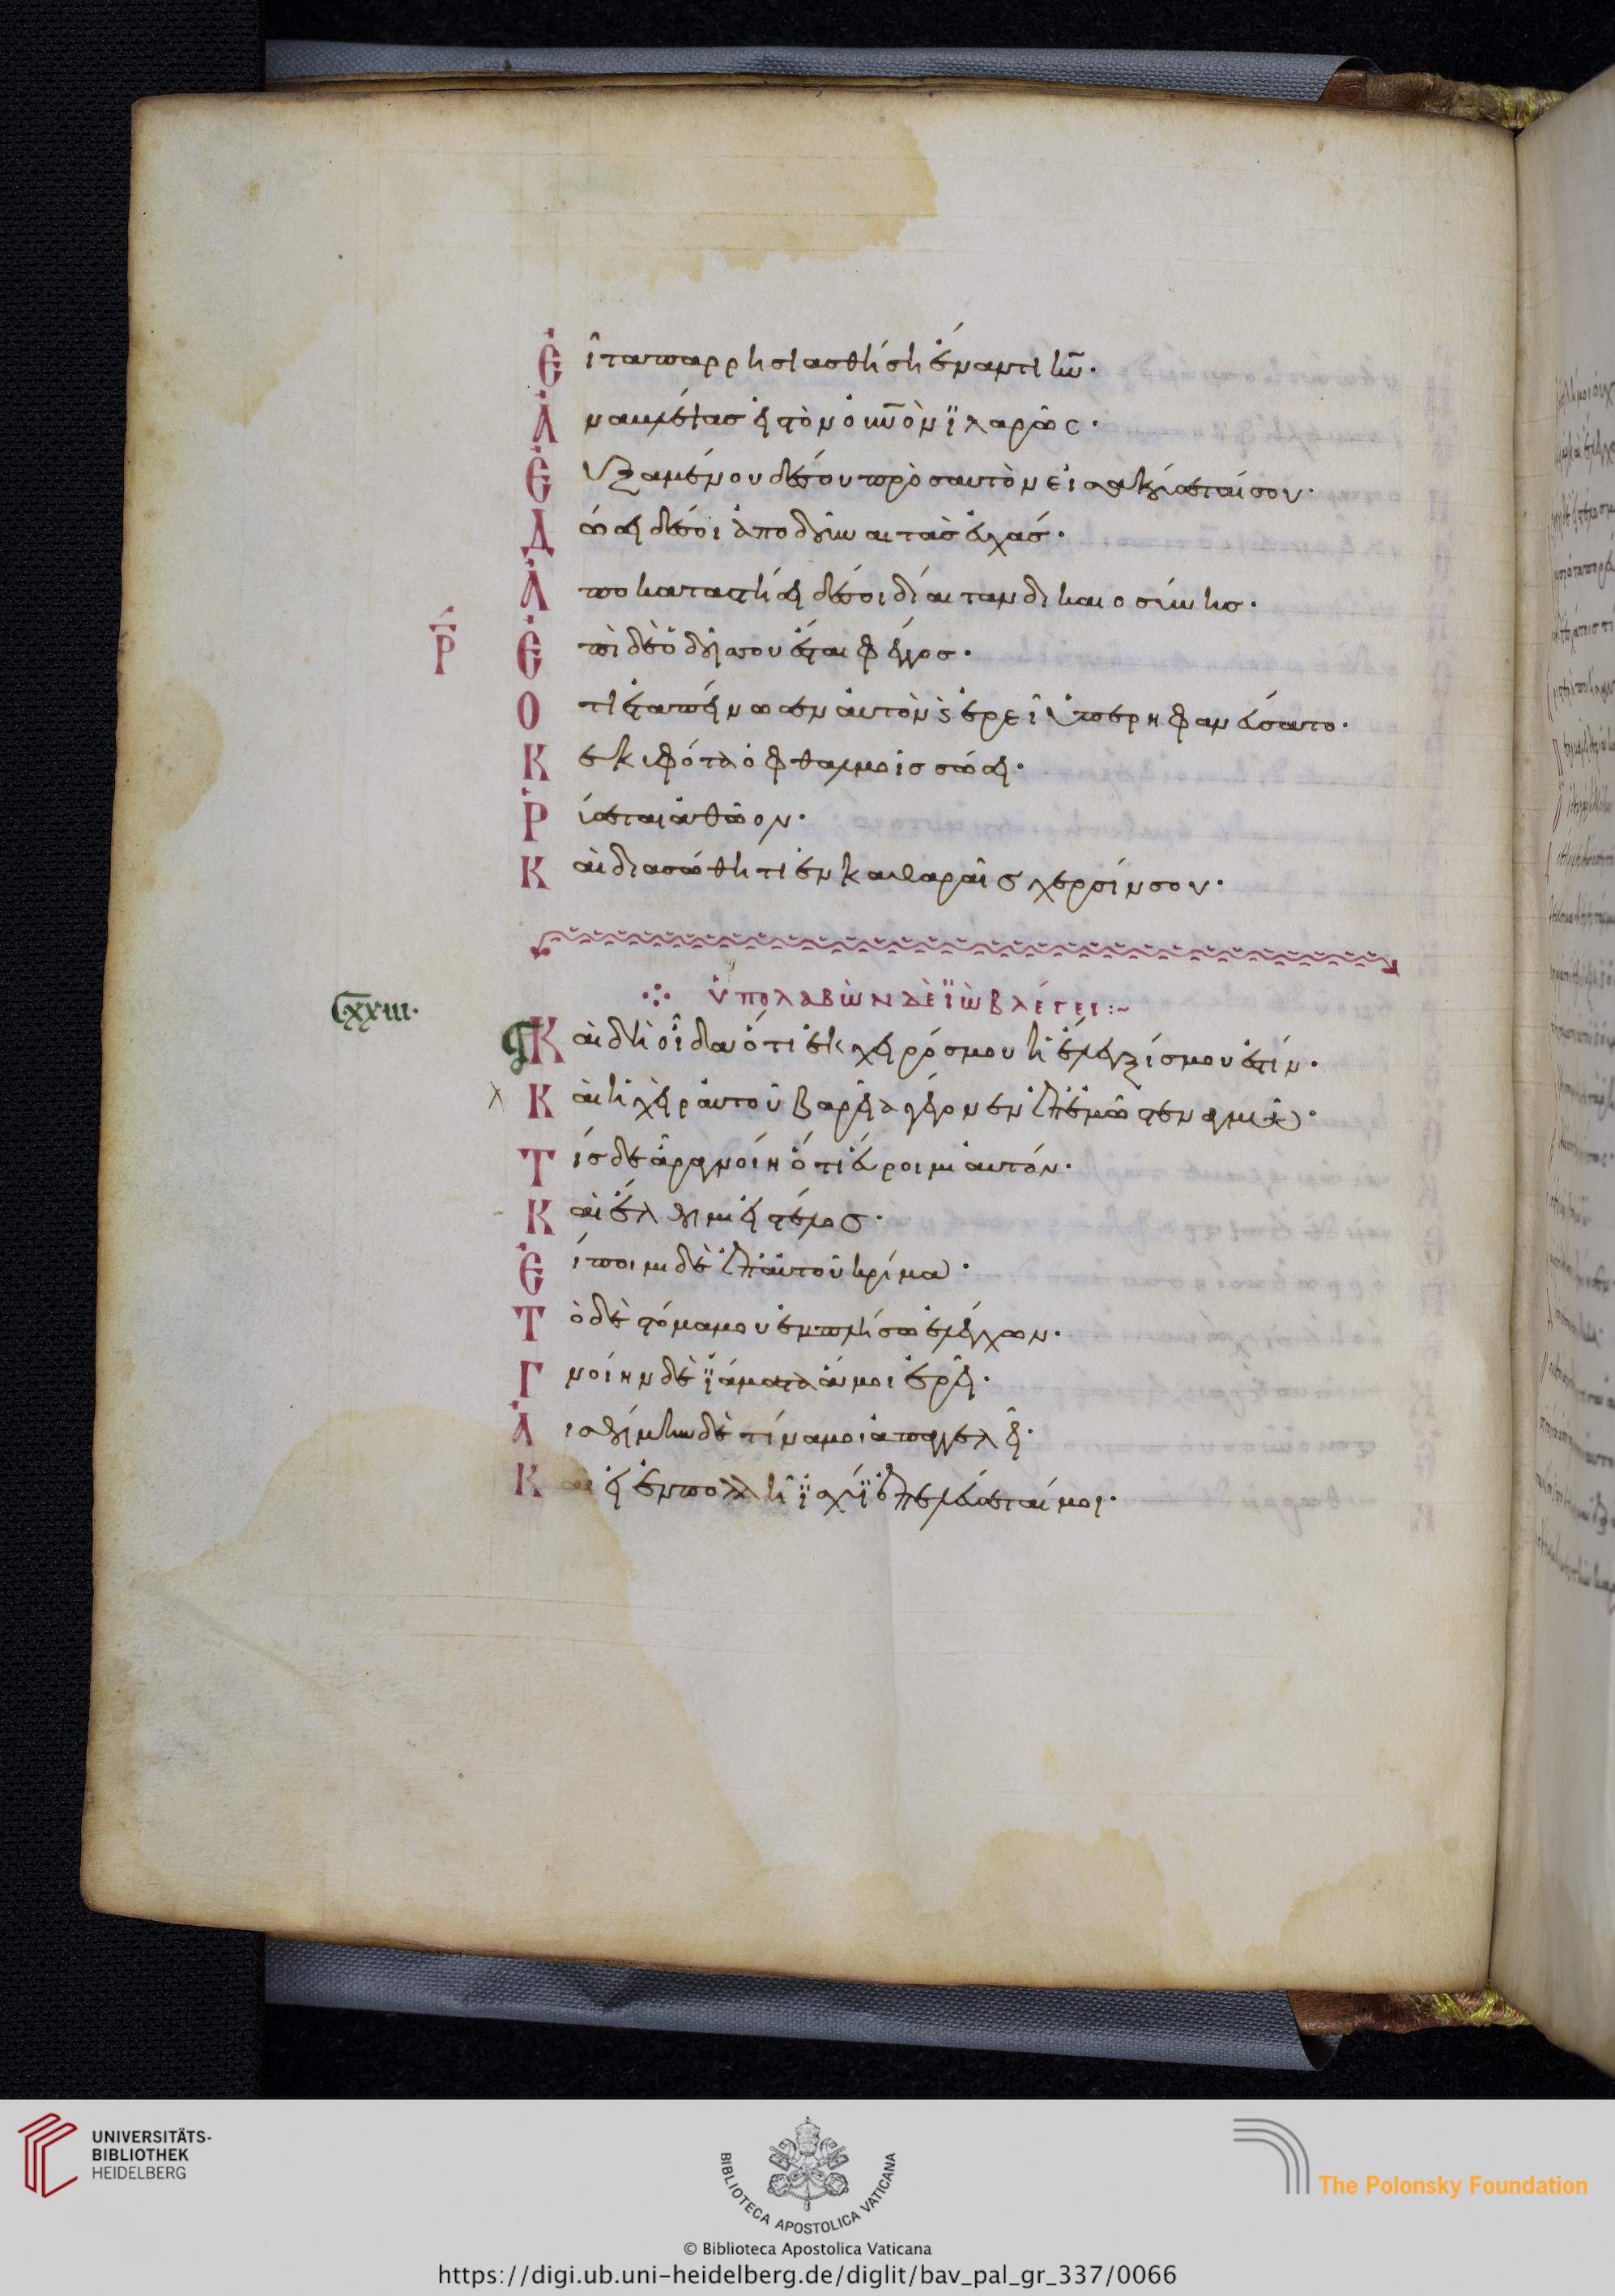 Εἶτα παρρησιασθήσῃ ἐναντι κῡ·
Ἀναβλέψας εἰς τὸν οὐνὸν ἱλαρῶς·
Εὐξαμένου δέ σου πρὸς αὐτὸν εἰσακούσεταί σου·
Δώσει δέ σοι ἀποδοῦναι τὰς εὐχάς·
Ἀποκαταστήσει δέ σοι δίαιταν δικαιοσύνης·
ρ̄
Ἐπὶ δὲ ὁδοῖς σου ἔσται φέγγος·
Ὅτι ἐταπείνωσεν αὐτὸν ϛ ἐρεῖ ὑπερηφανεύσατο·
Κεκυφότα ὀφθαλμοῖς σώσει·
Ῥύσεται ἀθῶον·
Καὶ διασώθητι ἐν καθαραῖς χερσίν σου·
ὑπολαβὼν δὲ ϊὼβ λέγει:~
Cxxiii·
Καὶ δὴ οἶδα ὅτι ἐκ χειρός μου ἡ ἔλεγξίς μου ἐστίν·
Καὶ ἡ χεὶρ αὐτοῦ βαρεῖα γέγονεν ἐπ' ἐμῶ στεναγμῶ·
Τίς δ' ἄρα γνοίη ὅτι εὕροιμι αὐτόν·
Καὶ ἔλθοιμι εἰς τέλος·
Εἴποιμι δὲ ἐπ' αὐτοῦ κρίμα·
Τὸ δὲ στόμα μου ἐμπλήσω ἐλέγχων·
Γνοίην δὲ ϊάματα ἅ μοι ἐρεῖ·
Αἰσθοίμην δὲ τίνα μοι ἀπαγγελεῖ·
Καὶ εἰ ἐν πολλῆ ϊσχύϊ ἐπελεύσεταί μοι·
UNIVERSITÄTS-
BIBLIOTHEK
HEIDELBERG
BIBLIOTECA APOSTOLICA VATICANA
The Polonsky Foundation
© Biblioteca Apostolica Vaticana
https://digi.ub.uni-heidelberg.de/diglit/bav_pal_gr_337/0066